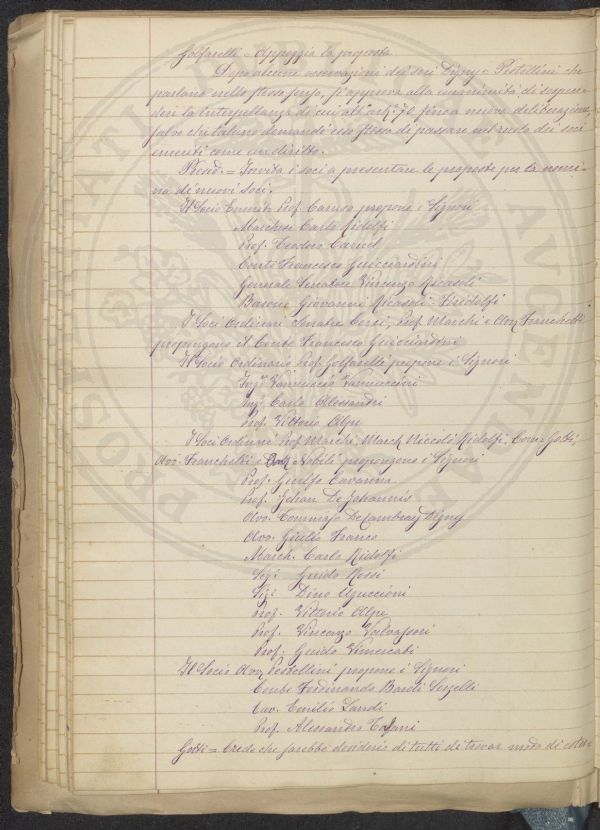 Golfarelli = Appoggia la proposta.
Dopo alcune osservazioni dei soci Digny e Pestellini che
parlano nello stesso senso, si approva alla unanimità di sospen-
dere la interpellanza di cui all'art.° 70 fino a nuova deliberazione,
salvo che taluno domandi esso stesso di passare nel ruolo dei soci
emeriti come un diritto.
Presid. = Invita i soci a presentare le proposte per la nomi-
na di nuovi soci.
Il Socio Emerito Prof. Caruso propone i Signori
Marchese Carlo Ridolfi
Prof. Teodoro Caruel
Conte Francesco Guicciardini
Generale Senatore Vincenzo Ricasoli
Barone Giovanni Ricasoli Firidolfi
I Soci Ordinari Senatore Corsi, Prof. Marchi e Avv. Franchetti
propongono il Conte Francesco Guicciardini
Il Socio Ordinario Prof. Golfarelli propone i Signori
Ing.re Vannuccio Vannuccini
Ing. Carlo Alessandri
Prof. Vittorio Alpe
I Soci Ordinari Prof. Marchi, March. Niccolò Ridolfi, Com. Gotti,
Avv. Franchetti e Nobili propongono i Signori
Prof. Guelfo Cavanna
Prof. Johan De Johannis
Avv. Tommaso De Cambray Digny
Avv. Giulio Franco
March. Carlo Ridolfi
Sig. Guido Rossi
Sig. Dino Uguccioni
Prof. Vittorio Alpe
Prof. Vincenzo Valvassori
Prof. Guido Vimercati
Il Socio Avv. Pestellini propone i Signori
Conte Ferdinando Bardi Serzelli
Cav. Emilio Landi
Prof. Alessandro Tafani
Gotti = Crede che sarebbe desiderio di tutti di trovar modo di